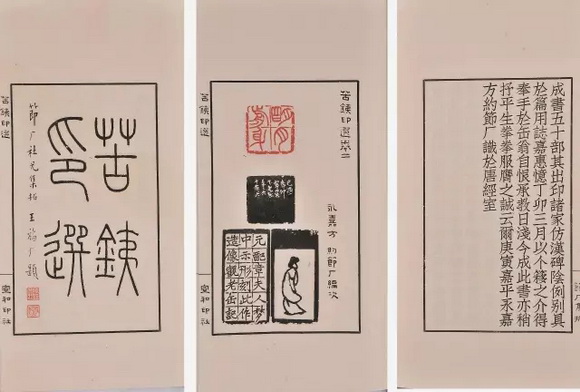 成書五十部其出印諸家仿漢碑陰例別具
於篇用誌嘉惠憶丁卯三月以个簃之介得
奉手於缶翁自恨承教日淺今成此書亦稍
抒平生拳拳服膺之誠云爾庚寅嘉平永嘉
方約節厂識於唐經室
苦銕印選卷二
永嘉方約節厂編次
明月前身
元配章夫人梦
中示形刻此作
造像觀老缶記
苦銕印選
宣和印社
苦銕
印選
節厂社兄集拓王福厂題
苦銕印選
宣和印社